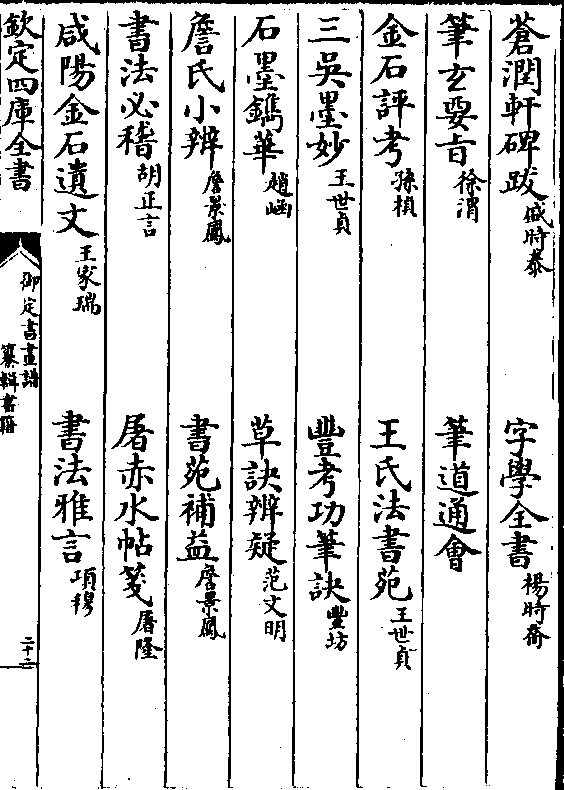 蒼潤軒碑跋盛時泰　字學全書楊時喬
筆玄要旨徐渭　筆道通會
金石評考孫楨　王氏法書苑王世貞
三吳墨妙王世貞　豐考功筆訣豐坊
石墨鐫華趙崡　草訣辨疑范文明
詹氏小辨詹景鳳　書苑補益詹景鳳
書法必稽胡正言　屠赤水帖箋屠隆
咸陽金石遺文王家瑞　書法雅言項穆
欽定四庫全書　御定書畫譜　纂輯書籍　二十二